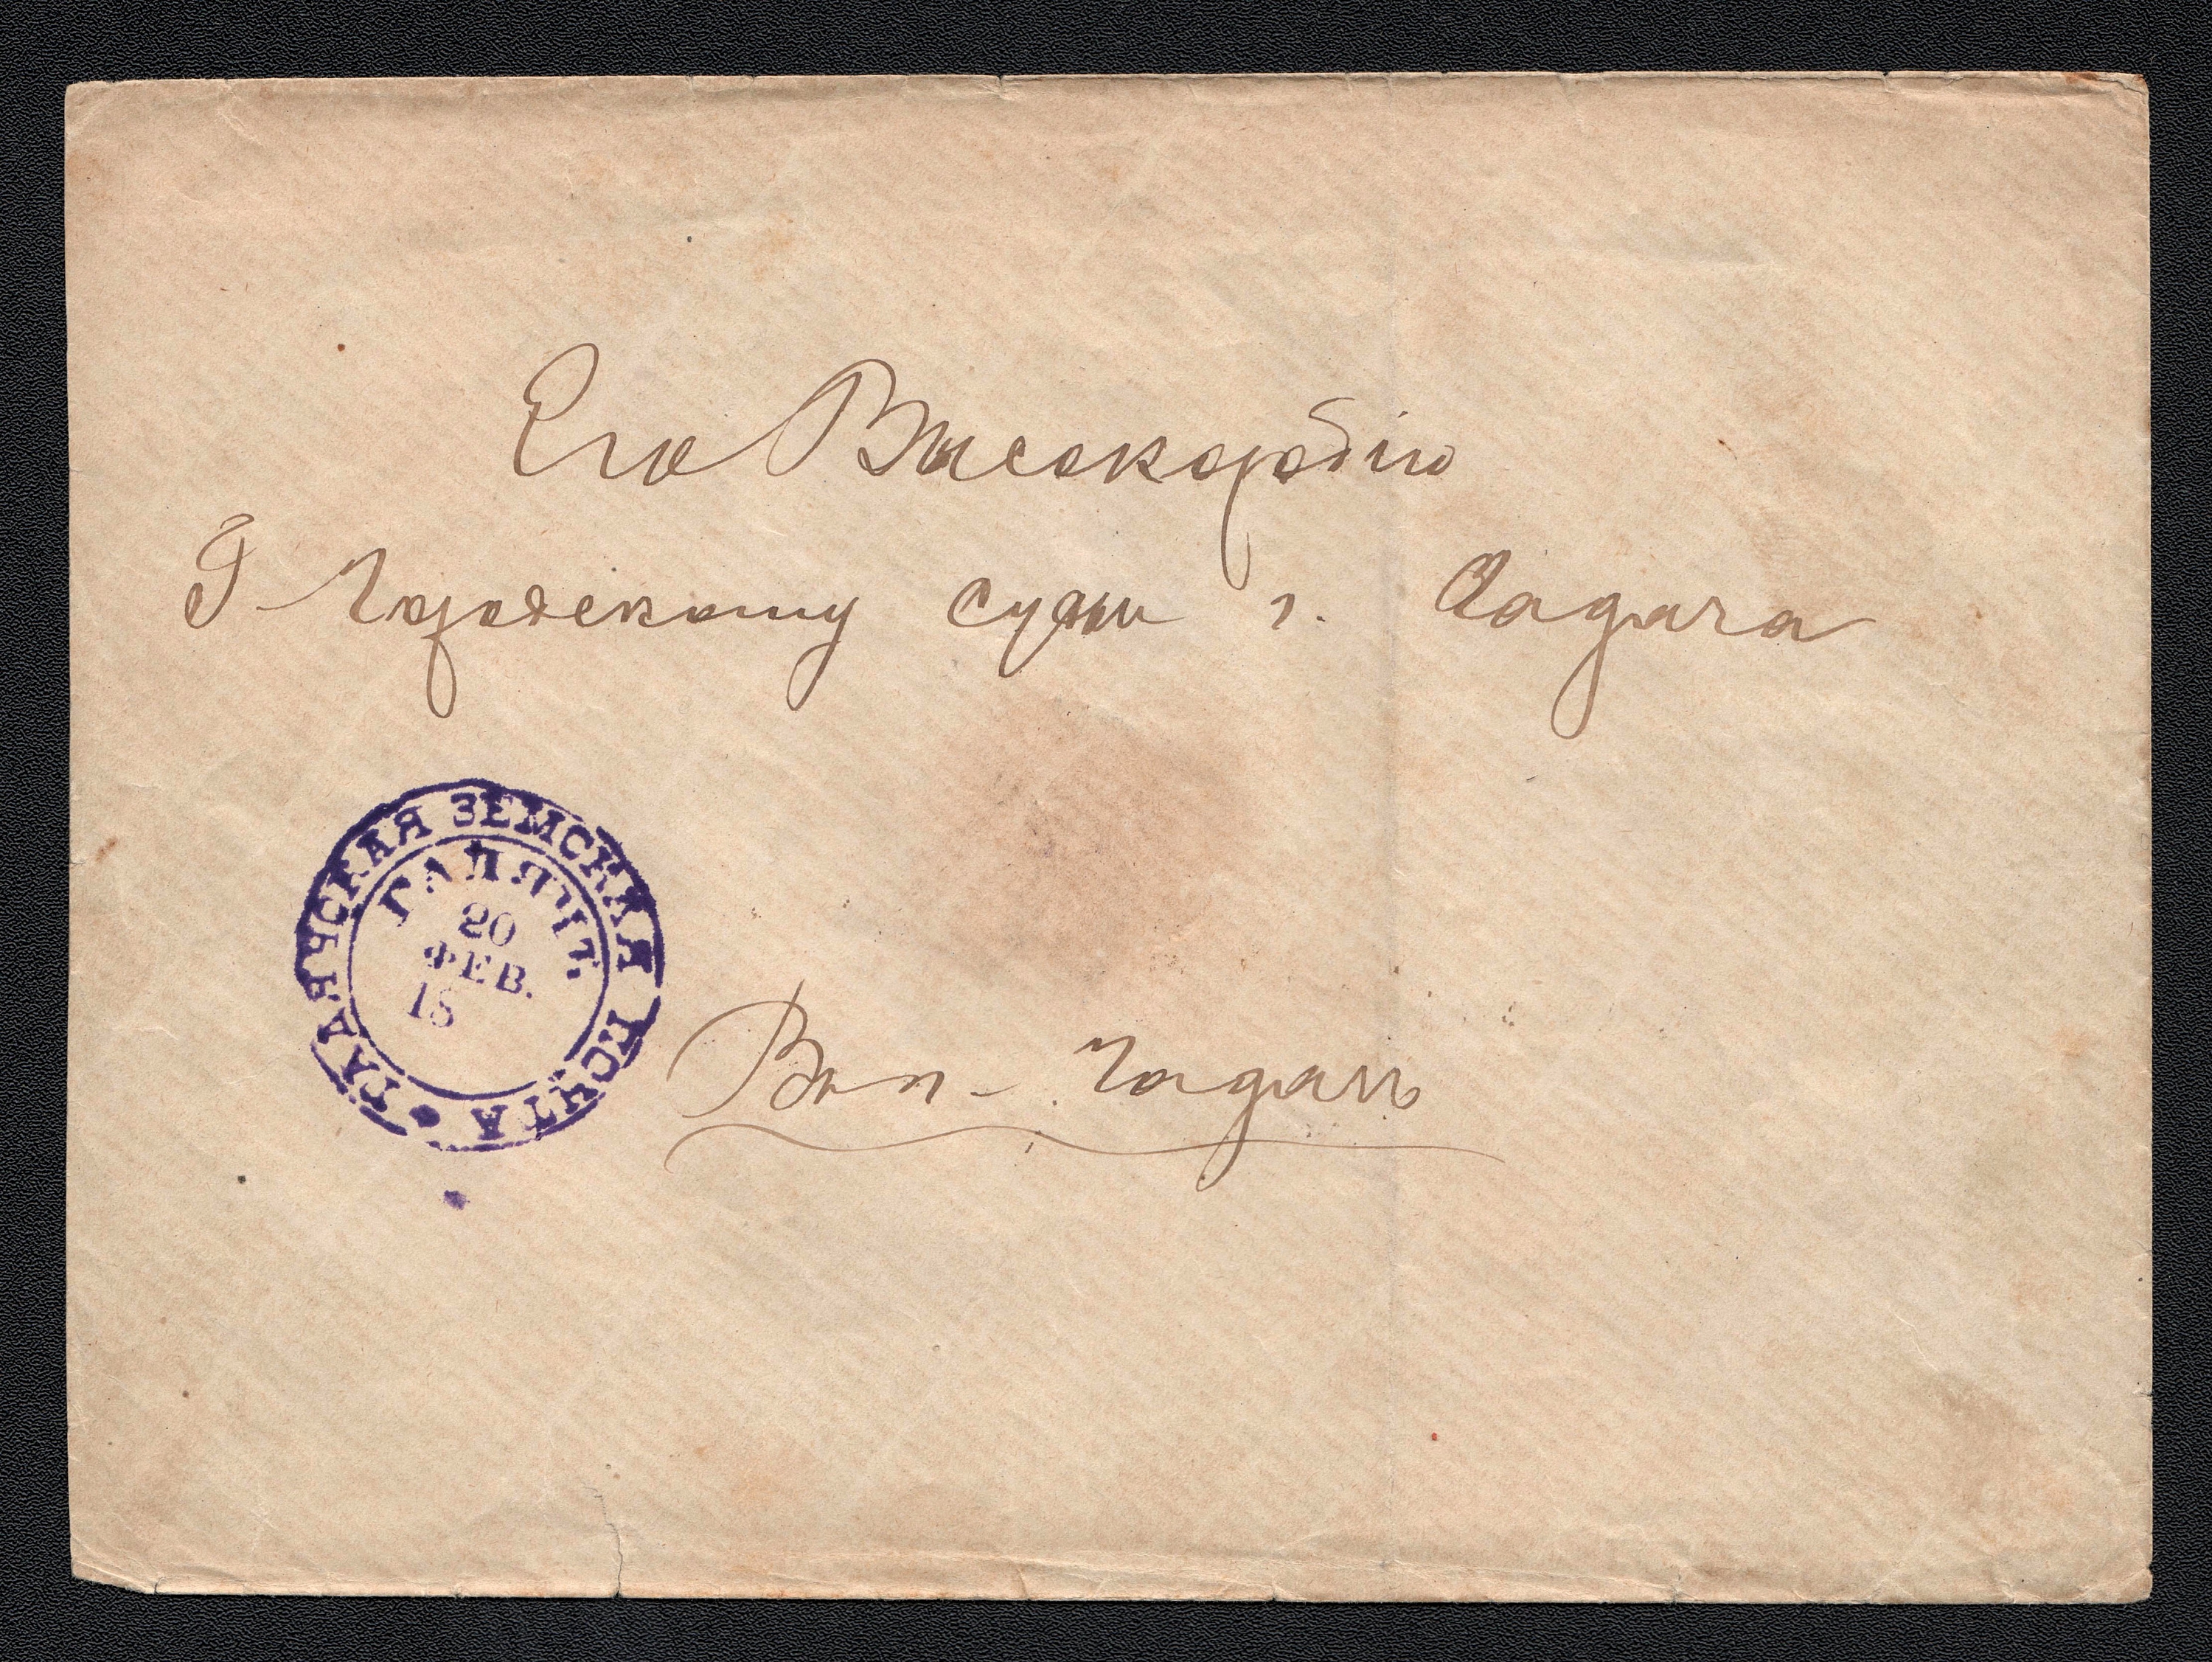 Его Высокоробію
Г Городскому судьи г. Гадяча
ГАДЯЧСКАЯ ЗЕМСКАЯ ПОЧТА
ГАДЯЧЪ.
20
ФЕВ.
18
Въ г. Гадячъ